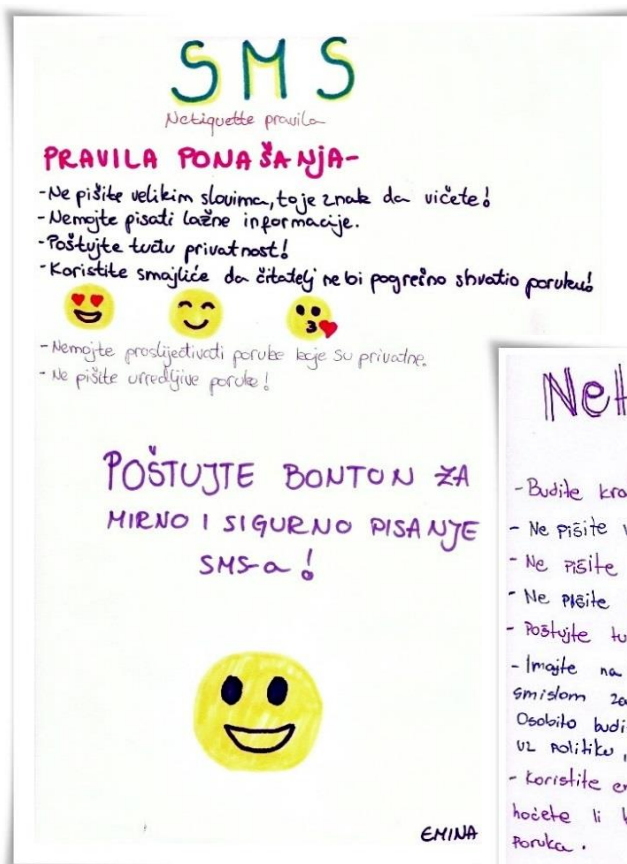 SMS
Netiquette pravila
PRAVILA PONAŠANJA-
-Ne pišite velikim slovima, to je znak da vičete!
-Nemojte pisati lažne informacije.
-Poštujte tuđu privatnost!
-Koristite smajliće da čitatelj ne bi pogrešno shvatio poruku!
-Nemojte proslijeđivati poruke koje su privatne.
-Ne pišite uvredljive poruke!
POŠTUJTE BONTON ZA
MIRNO I SIGURNO PISANJE
SMS-a!
EMINA
-Budite
-Ne pišite
-Ne pišite
-Ne pišite
-Poštujte
-Imajte na
smislom
Osobito
uz politiku,
-Koristite
hoćete li
poruka.